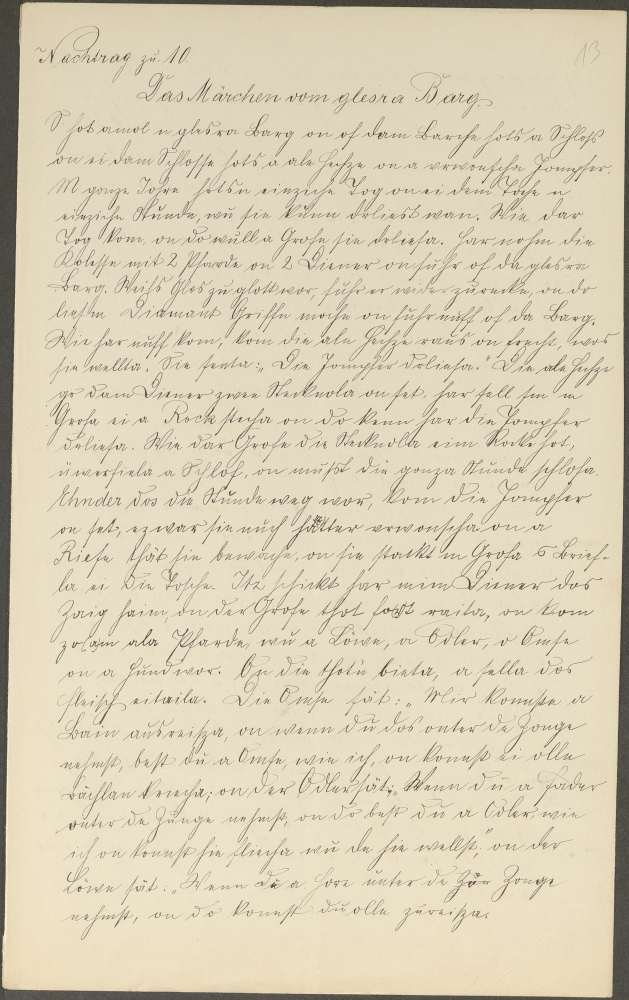 Nachtrag zu 10.
13
Das Märchen vom glesra Barg.
S hot amol n glesra Barg on of dam Barche hots a Schloß
on ei dam Schlosse hots a ale Hechze on a vrwonscha Jompfer.
M gonze Johre hotsn einziche Tog on ei dem Toche n
einziche Stunde, wu sie kunn drliest wan. Wie dar
Tog kom, on do wull a Grofe sie drliesa. Har nohm die
Kolesse mit 2 Pfarde on 2 Diener on fuhr of da glesra
Barg. Weils Glos zu glott wor, fuhr er wider zurecke, on do
ließ'm Diamant Griffe mache on fuhr nuff of da Barg.
Wie har nuff kom, kom die ale Hechze raus on frecht, wos
sie wellta. Sie senta: „Die Jompfer drliesa." Die ale Hechze
ga dam Diener zwee Stecknola on set, har sell sm m
Grofa ei a Rock stecha on do kenn har die Jompfer
drliesa. Wie dar Grofe die Stecknola eim Rocke hot,
iwerfiela a Schlof, on mußt die gonza Stunde schlofa.
Ehnder dos die Stunde weg wor, kom die Jompfer
on set, ez war sie nuch hätter vrwonscha on a
Riese thät sie bewache, on sie stackt m Grofa s Brief-
la ei die Tosche. Itz schickt har mim Diener dos
Zaig haim, on der Grofe thot fort raita, on kom
zo am ala Pfarde, wu a Löwe, a Odler, o Omse
on a Hund wor. On die thot'n bieta, a sella dos
Fleisch eitaila. Die Omse sät: „Mir konnste a
Bain ausreißa, on wenn du dos onter de Zonge
nehmst, best du a Omse, wie ich, on konnst ei olle
Löchlan kriecha; on der Odler sät: „Wenn du a Fader
onter de Zunge nehmst, on do best du a Odler, wie
ich on konnst hie fliecha wu de hie wellst," on der
Löwe sät: „Wenn du a Hore unter de Zonge
nehmst, on do konnst du olle zureißa.